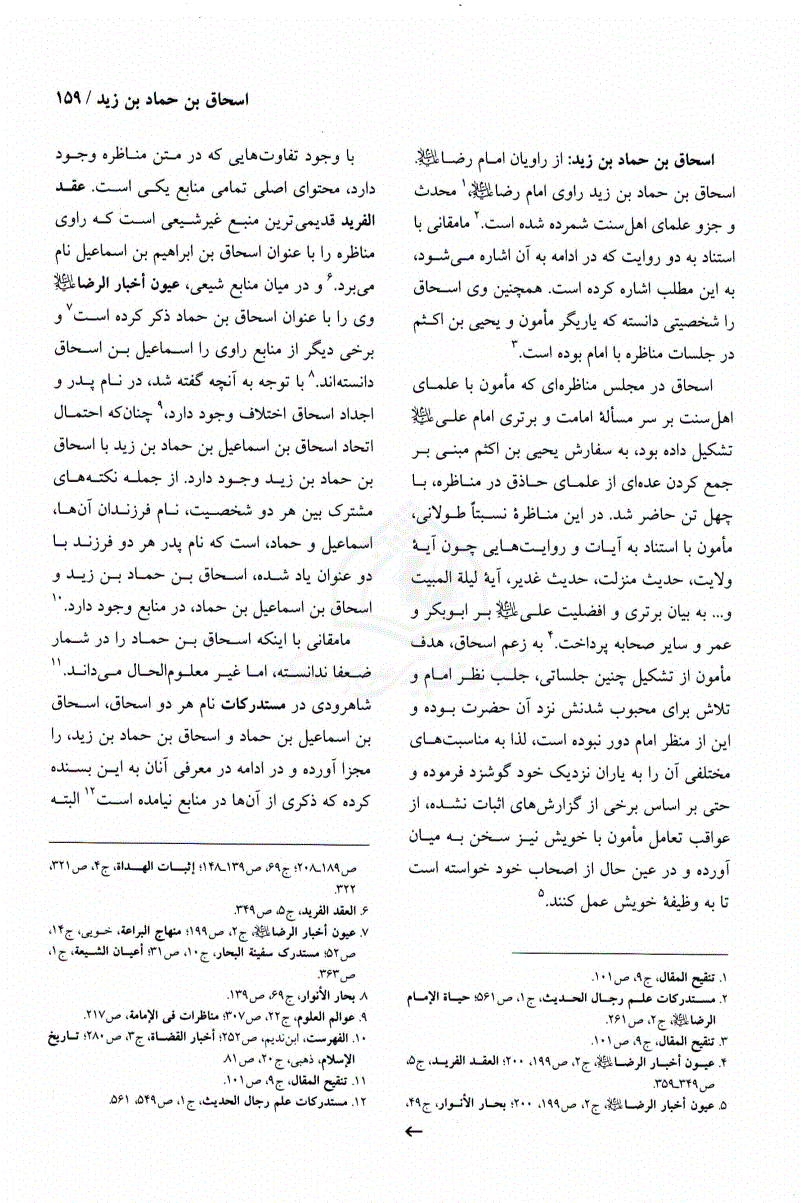 اسحاق بن حماد بن زید / ۱۵۹
اسحاق بن حماد بن زید: از راویان امام رضا﷤.
اسحاق بن حماد بن زید راوی امام رضا﷤،۱ محدث
و جزو علمای اهل‌سنت شمرده شده است.۲ مامقانی با
استناد به دو روایت که در ادامه به آن اشاره می‌شود،
به این مطلب اشاره کرده است. همچنین وی اسحاق
را شخصیتی دانسته که یاریگر مأمون و یحیی بن اکثم
در جلسات مناظره با امام بوده است.۳
اسحاق در مجلس مناظره‌ای که مأمون با علمای
اهل‌سنت بر سر مسألهٔ امامت و برتری امام علی﷤
تشکیل داده بود، به سفارش یحیی بن اکثم مبنی بر
جمع کردن عده‌ای از علمای حاذق در مناظره، با
چهل تن حاضر شد. در این مناظرهٔ نسبتاً طولانی،
مأمون با استناد به آیات و روایت‌هایی چون آیهٔ
ولایت، حدیث منزلت، حدیث غدیر، آیهٔ لیلة المبیت
و... به بیان برتری و افضلیت علی﷤ بر ابوبکر و
عمر و سایر صحابه پرداخت.۴ به زعم اسحاق، هدف
مأمون از تشکیل چنین جلساتی، جلب نظر امام و
تلاش برای محبوب شدنش نزد آن حضرت بوده و
این از منظر امام دور نبوده است، لذا به مناسبت‌های
مختلفی آن را به یاران نزدیک خود گوشزد فرموده و
حتی بر اساس برخی از گزارش‌های اثبات نشده، از
عواقب تعامل مأمون با خویش نیز سخن به میان
آورده و در عین حال از اصحاب خود خواسته است
تا به وظیفهٔ خویش عمل کنند.۵
۱. تنقیح المقال، ج۹، ص۱۰۱.
۲. مستدرکات علم رجال الحدیث، ج۱، ص۵۶۱؛ حیاة الإمام
الرضا﷤، ج۲، ص۲۶۱.
۳. تنقیح المقال، ج۹، ص۱۰۱.
۴. عیون أخبار الرضا﷤، ج۲، ص۱۹۹، ۲۰۰؛ العقد الفرید، ج۵،
ص۳۴۹ـ۳۵۹.
۵. عیون أخبار الرضا﷤، ج۲، ص۱۹۹، ۲۰۰؛ بحار الأنوار، ج۴۹،
←
با وجود تفاوت‌هایی که در متن مناظره وجود
دارد، محتوای اصلی تمامی منابع یکی است. عقد
الفرید قدیمی‌ترین منبع غیرشیعی است که راوی
مناظره را با عنوان اسحاق بن ابراهیم بن اسماعیل نام
می‌برد.۶ و در میان منابع شیعی، عیون أخبار الرضا﷤
وی را با عنوان اسحاق بن حماد ذکر کرده است۷ و
برخی دیگر از منابع راوی را اسماعیل بن اسحاق
دانسته‌اند.۸ با توجه به آنچه گفته شد، در نام پدر و
اجداد اسحاق اختلاف وجود دارد،۹ چنان‌که احتمال
اتحاد اسحاق بن اسماعیل بن حماد بن زید با اسحاق
بن حماد بن زید وجود دارد. از جمله نکته‌های
مشترک بین هر دو شخصیت، نام فرزندان آن‌ها،
اسماعیل و حماد، است که نام پدر هر دو فرزند با
دو عنوان یاد شده، اسحاق بن حماد بن زید و
اسحاق بن اسماعیل بن حماد، در منابع وجود دارد.۱۰
مامقانی با اینکه اسحاق بن حماد را در شمار
ضعفا ندانسته، اما غیر معلوم‌الحال می‌داند.۱۱
شاهرودی در مستدرکات نام هر دو اسحاق، اسحاق
بن اسماعیل بن حماد و اسحاق بن حماد بن زید، را
مجزا آورده و در ادامه در معرفی آنان به این بسنده
کرده که ذکری از آن‌ها در منابع نیامده است۱۲ البته
ص۱۸۹ـ۲۰۸؛ ج۶۹، ص۱۳۹ـ۱۴۸؛ إثبات الهداة، ج۴، ص۳۲۱،
۳۲۲.
۶. العقد الفرید، ج۵، ص۳۴۹.
۷. عیون أخبار الرضا﷤، ج۲، ص۱۹۹؛ منهاج البراعة، خویی، ج۱۴،
ص۵۲؛ مستدرک سفینة البحار، ج۱۰، ص۳۱؛ أعیان الشیعة، ج۱،
ص۳۶۳.
۸. بحار الأنوار، ج۶۹، ص۱۳۹.
۹. عوالم العلوم، ج۲۲، ص۳۰۷؛ مناظرات فی الإمامة، ص۲۱۷.
۱۰. الفهرست، ابن‌ندیم، ص۲۵۲؛ أخبار القضاة، ج۳، ص۲۸۰؛ تاریخ
الإسلام، ذهبی، ج۲۰، ص۸۱.
۱۱. تنقیح المقال، ج۹، ص۱۰۱.
۱۲. مستدرکات علم رجال الحدیث، ج۱، ص۵۴۹، ۵۶۱.